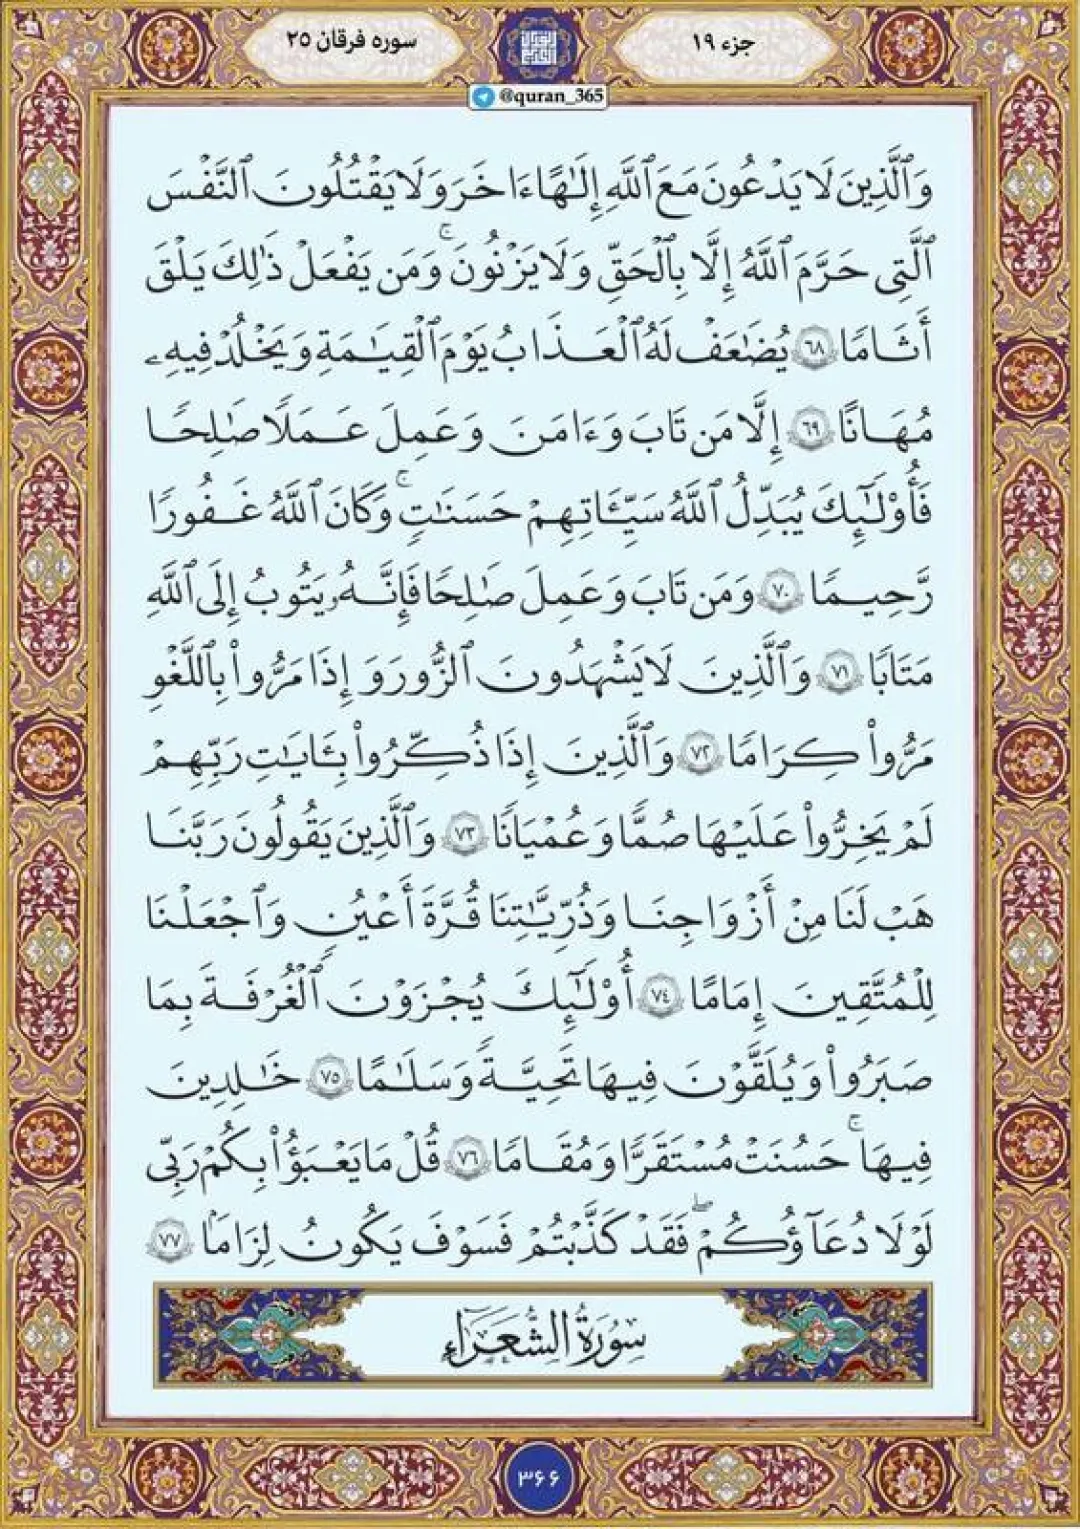 جزء ۱۹
سوره فرقان ۲۵
@quran_365
وَٱلَّذِينَ لَا يَدْعُونَ مَعَ ٱللَّهِ إِلَـٰهًا ءَاخَرَ وَلَا يَقْتُلُونَ ٱلنَّفْسَ
ٱلَّتِى حَرَّمَ ٱللَّهُ إِلَّا بِٱلْحَقِّ وَلَا يَزْنُونَ ۚ وَمَن يَفْعَلْ ذَٰلِكَ يَلْقَ
أَثَامًا ۶۸ يُضَـٰعَفْ لَهُ ٱلْعَذَابُ يَوْمَ ٱلْقِيَـٰمَةِ وَيَخْلُدْ فِيهِۦ
مُهَانًا ۶۹ إِلَّا مَن تَابَ وَءَامَنَ وَعَمِلَ عَمَلًا صَـٰلِحًا
فَأُو۟لَـٰٓئِكَ يُبَدِّلُ ٱللَّهُ سَيِّـَٔاتِهِمْ حَسَنَـٰتٍ ۗ وَكَانَ ٱللَّهُ غَفُورًا
رَّحِيمًا ۷۰ وَمَن تَابَ وَعَمِلَ صَـٰلِحًا فَإِنَّهُۥ يَتُوبُ إِلَى ٱللَّهِ
مَتَابًا ۷۱ وَٱلَّذِينَ لَا يَشْهَدُونَ ٱلزُّورَ وَإِذَا مَرُّوا۟ بِٱللَّغْوِ
مَرُّوا۟ كِرَامًا ۷۲ وَٱلَّذِينَ إِذَا ذُكِّرُوا۟ بِـَٔايَـٰتِ رَبِّهِمْ
لَمْ يَخِرُّوا۟ عَلَيْهَا صُمًّا وَعُمْيَانًا ۷۳ وَٱلَّذِينَ يَقُولُونَ رَبَّنَا
هَبْ لَنَا مِنْ أَزْوَاجِنَا وَذُرِّيَّـٰتِنَا قُرَّةَ أَعْيُنٍ وَٱجْعَلْنَا
لِلْمُتَّقِينَ إِمَامًا ۷۴ أُو۟لَـٰٓئِكَ يُجْزَوْنَ ٱلْغُرْفَةَ بِمَا
صَبَرُوا۟ وَيُلَقَّوْنَ فِيهَا تَحِيَّةً وَسَلَـٰمًا ۷۵ خَـٰلِدِينَ
فِيهَا ۚ حَسُنَتْ مُسْتَقَرًّا وَمُقَامًا ۷۶ قُلْ مَا يَعْبَؤُا۟ بِكُمْ رَبِّى
لَوْلَا دُعَآؤُكُمْ ۖ فَقَدْ كَذَّبْتُمْ فَسَوْفَ يَكُونُ لِزَامًۢا ۷۷
سُورَةُ الشُّعَرَاءِ
۳۶۶